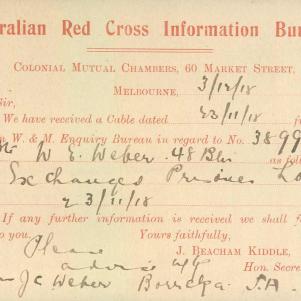 ralian Red Cross Information Bu
COLONIAL MUTUAL CHAMBERS, 60 MARKET STREET,
MELBOURNE, 3/12/18
Sir,
We have received a Cable dated 23/11/18 f
W. & M. Enquiry Bureau in regard to No. 3899
W E Weber. 48 Bn as follo
Exchanged Prisoner
23/11/18
If any further information is received we shall f
to you. Yours faithfully,
Please J. BEACHAM KIDDLE,
advise Hon. Secre
J C Weber Borrika S.A.